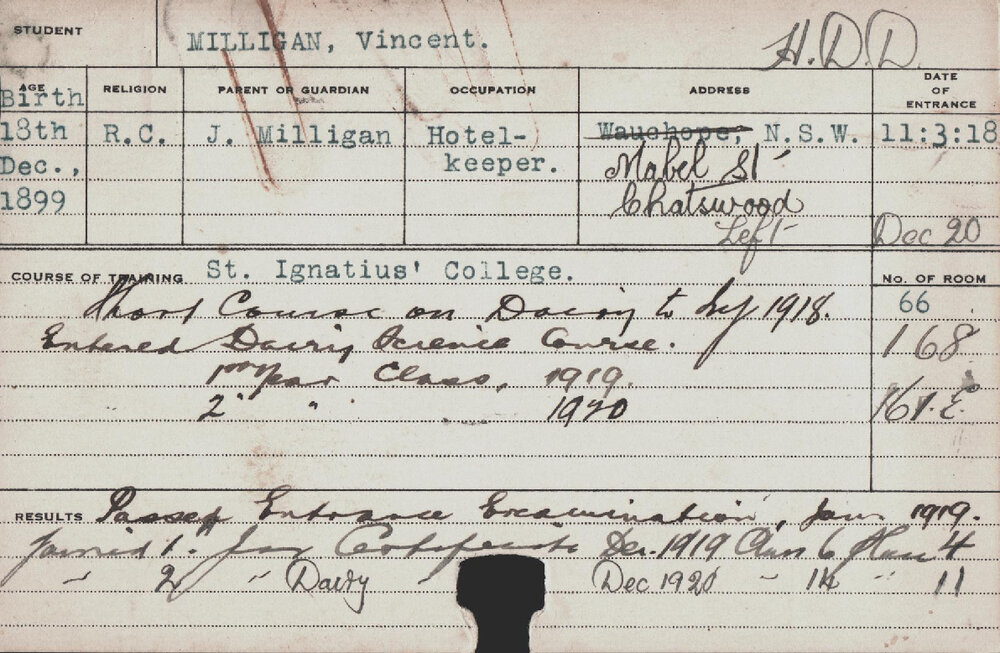 STUDENT MILLIGAN, Vincent. H.D.D.
AGE RELIGION PARENT OR GUARDIAN OCCUPATION ADDRESS DATE OF ENTRANCE
Birth
18th R.C. J. Milligan Hotel- Wauchope, N.S.W. 11:3:18
Dec., keeper. Mabel St
1899 Chatswood
Left Dec 20
COURSE OF TRAINING St. Ignatius' College. No. OF ROOM
Short Course on Dairy to 1918. 66
Entered Dairy Science Course. 168
1st year Class, 1919.
2" " 1920 161.E.
RESULTS Passed Entrance Examination, Jan 1919.
1st Certificate Dec. 1919 Class 6 Place 4
" 2 " Dairy Dec 1920 " 14 " 11